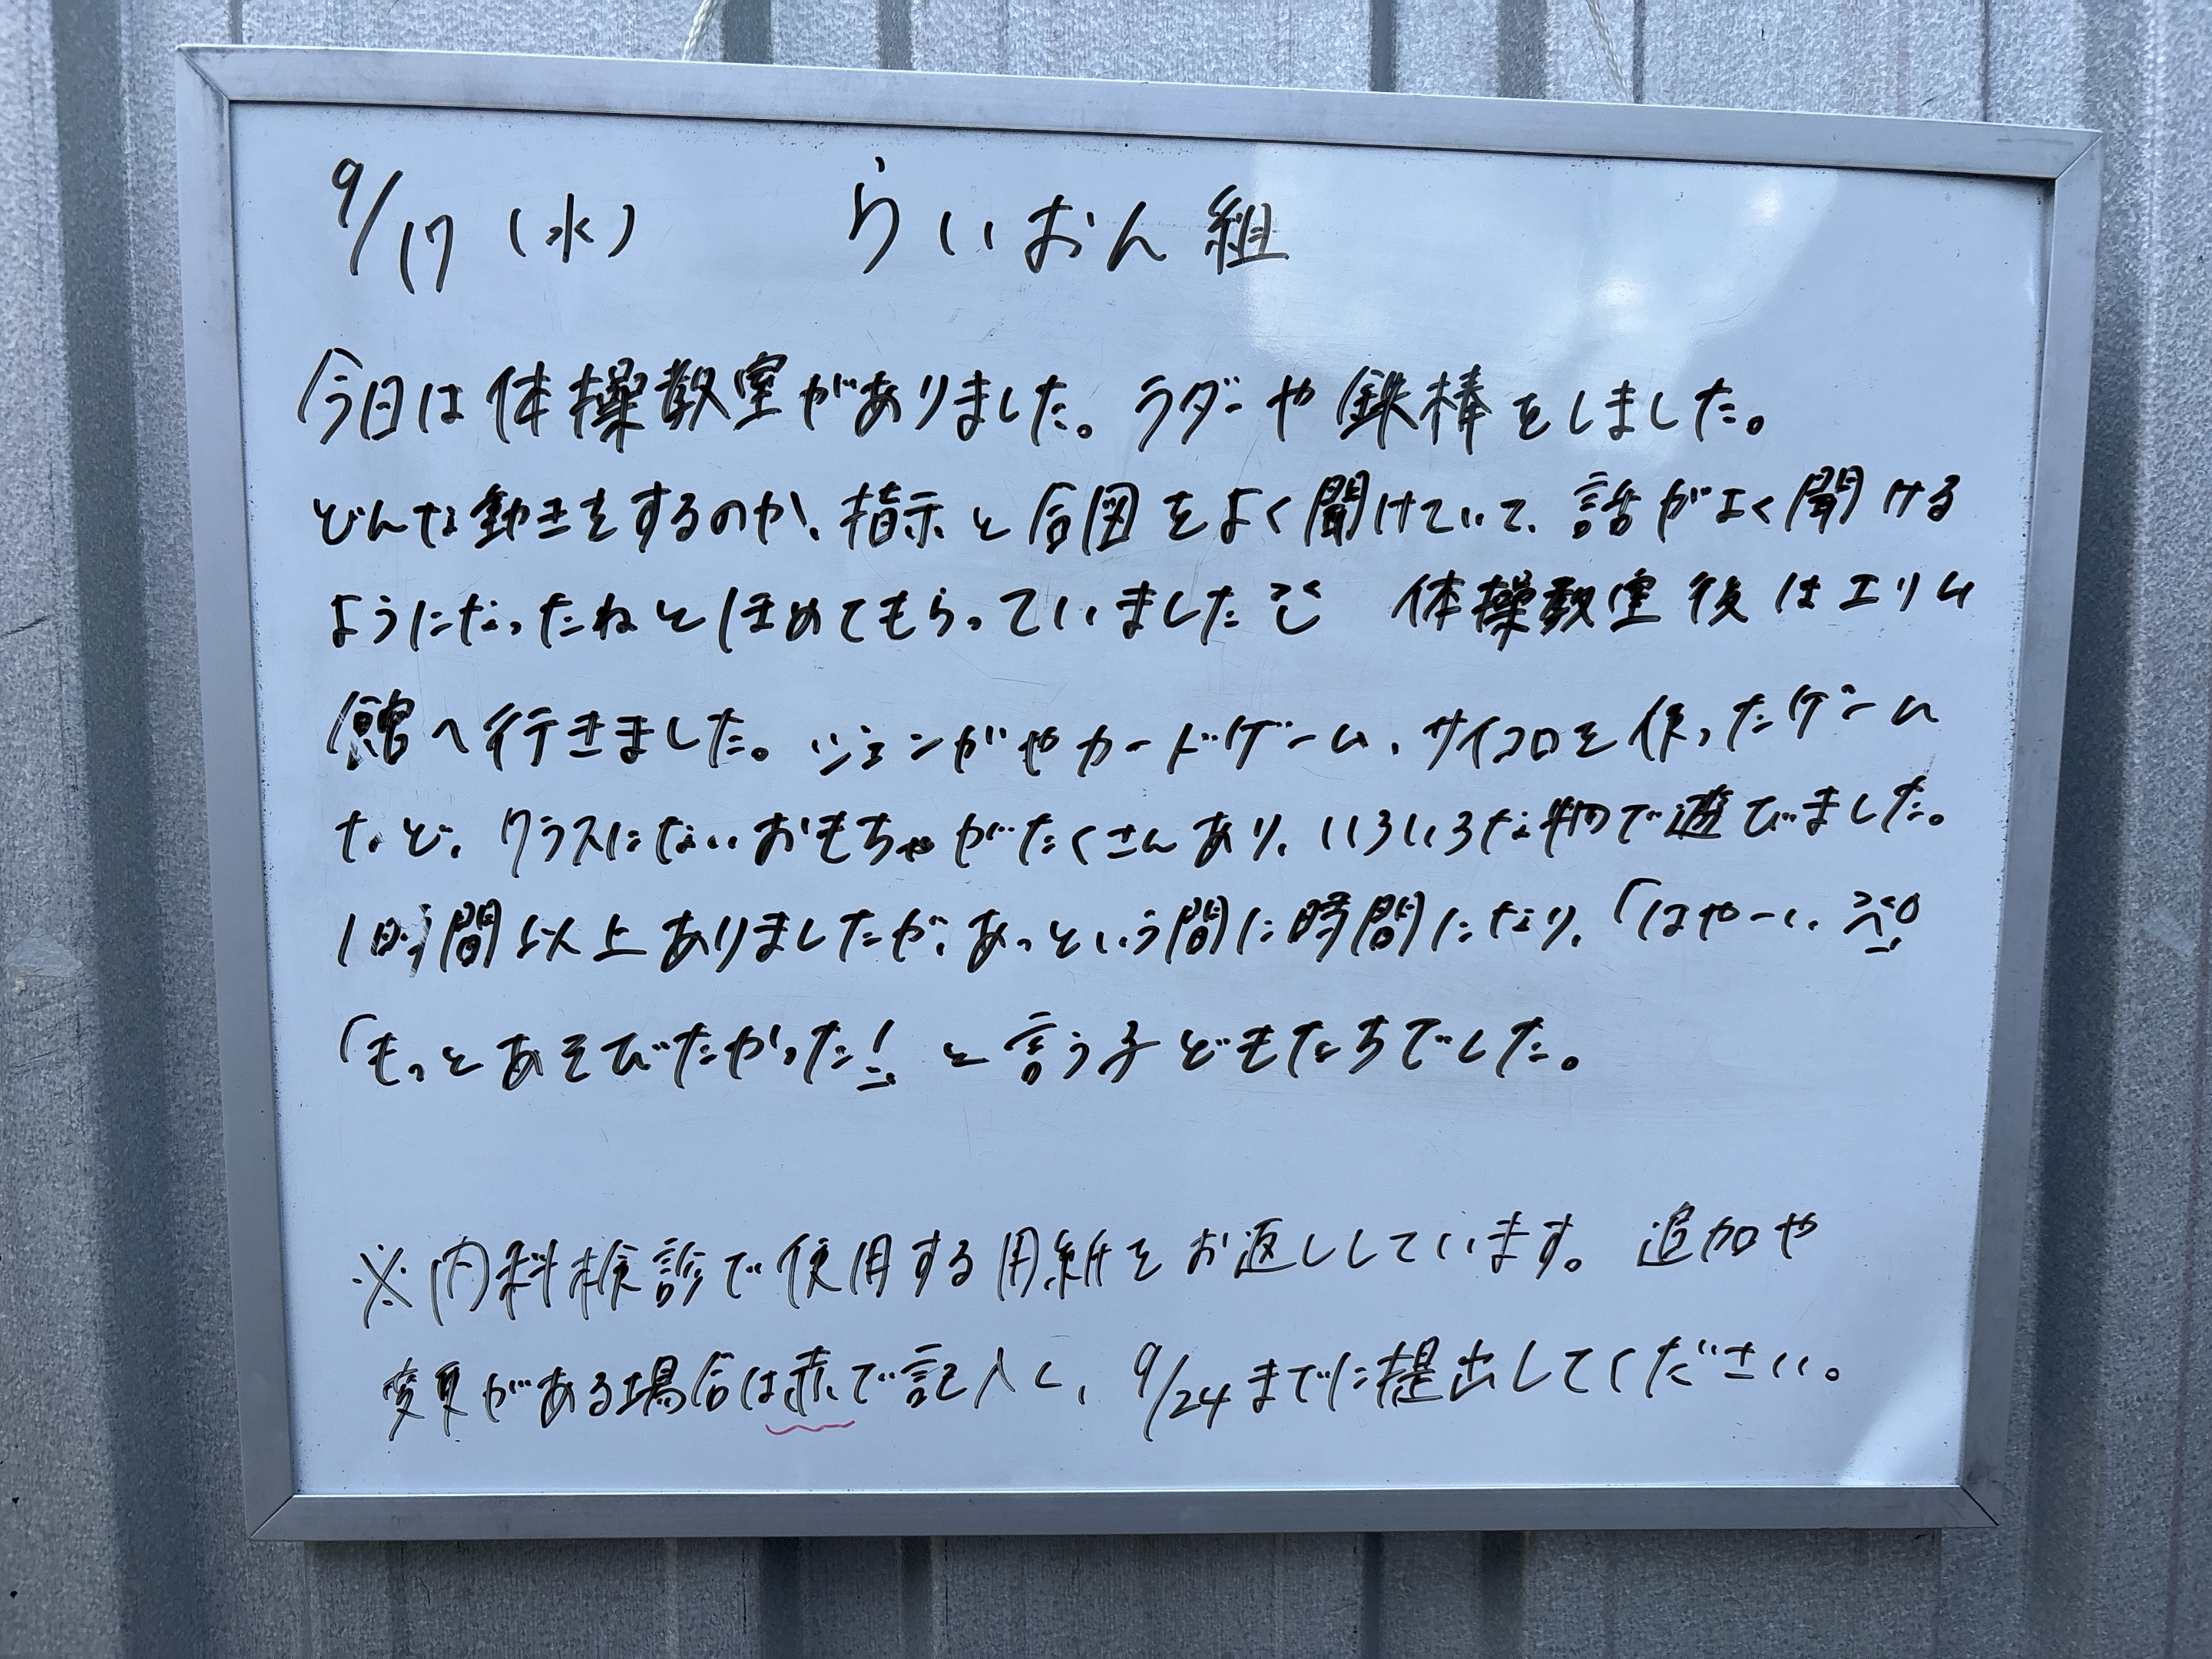 9/17（水）　らいおん組
今日は体操教室がありました。ラダーや鉄棒をしました。
どんな動きをするのか、指示と合図をよく聞けていて、話がよく聞ける
ようになったねとほめてもらっていました 体操教室後はエリム
館へ行きました。ジェンガやカードゲーム、サイコロを使ったゲーム
など、クラスにないおもちゃがたくさんあり、いろいろな物で遊びました。
1時間以上ありましたが、あっという間に時間になり、「はやーい
「もっとあそびたかった！」と言う子どもたちでした。
※内科検診で使用する用紙をお返ししています。追加や
変更がある場合は赤で記入し、9/24までに提出してください。